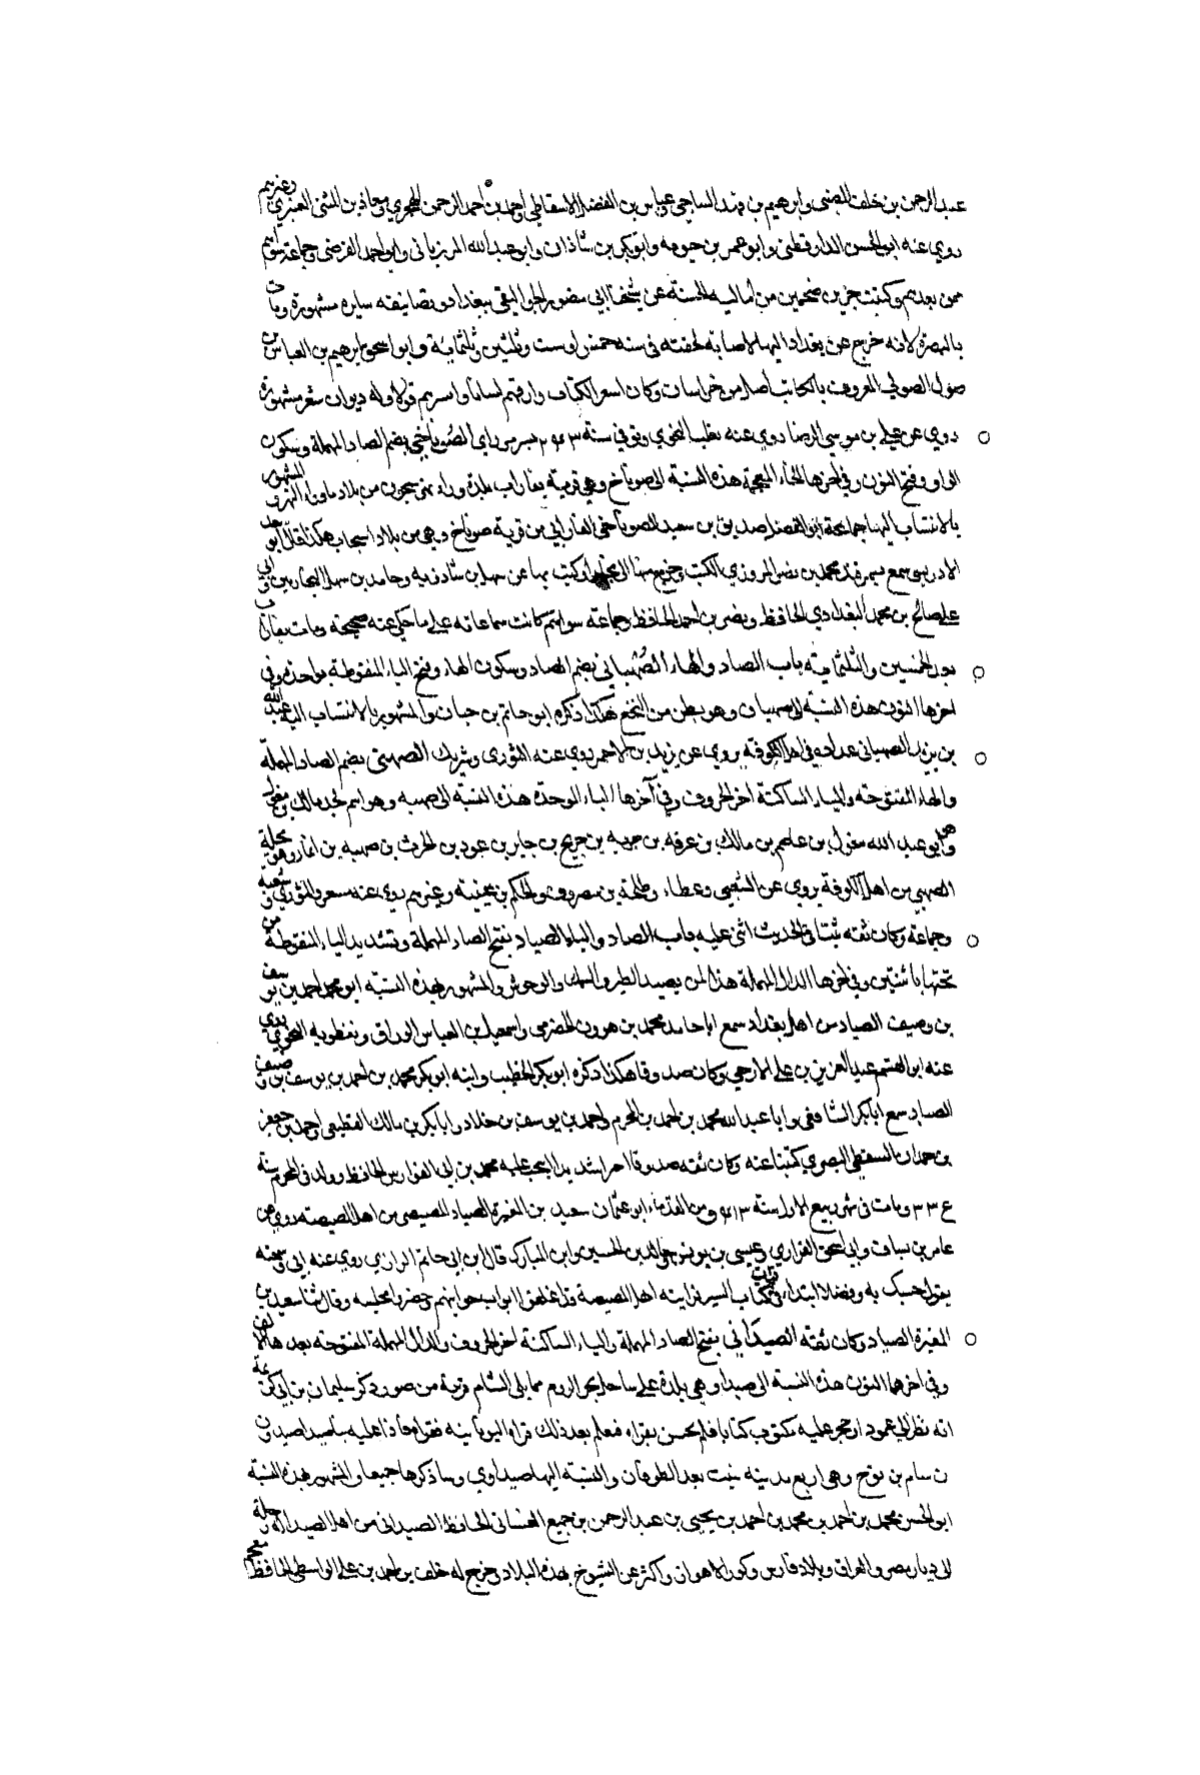 عبد الرحمن بن خلف الضبي وابرهيم بن فهد الساجي وعباس بن الفضل الاسفاطي واحمد بن احمد الرحمن الهجري ومعاذ بن المثنى العنبري وغيرهم
روي عنه ابو الحسن الدارقطني وابو عمر بن حيويه وابو بكر بن شاذان وابو عبد الله المرزباني وابو احمد الفرضي وجماعة سواهم
ممن بعدهم وكتبت جزين ضخمين من اماليه الحسنة عن شيخنا ابي منصور الجواليقي ببغداد وتصانيفه سايره مشهورة ومات
بالبصرة لانه خرج عن بغداد اليها لاضاقة لحقته في سنه خمس او ست وثلثين وثلثمائة وابو اسحق ابرهيم بن العباس بن
صول الصولي المعروف بالكاتب اصله من خراسان وكان اشعر الكتاب وارقهم لسانا واسيرهم قولا وله ديوان شعر مشهور
روي عن علي بن موسى الرضا روي عنه ثعلب النحوي وتوفي في سنة ٢٤٣ بسر من راى الصوناخي بضم الصاد المهملة وسكون
الواو وفتح النون وفي اخرها الخاء المعجمة هذه النسبة الى صوناخ وهي قرية بفاراب بلدة وراء نهر سيحون من بلاد ما وراء النهر والمشهور
بالانتساب اليها جماعة ابو الفضل صديق بن سعيد الصوناخي الفارابي من قرية صوناخ وهي من بلاد اسبيجاب هكذا قال ابو سعد
الادريسي سمع بسمرقند محمد بن نصر المروزي الكتب وخرج منها الى بخارا وكتب بها عن سهل بن شاذويه وحامد بن سهل البخاريين وابي
علي صالح بن محمد البغدادي الحافظ ونصر بن احمد الحافظ وجماعة سواهم كانت سماعاته على ما حكي عنه صحيحة ومات بفاراب
بعد الخمسين والثلثماية باب الصاد والهاء الصهباني بضم الصاد وسكون الهاء وفتح الباء المنقوطة بواحدة وفي
اخرها النون هذه النسبة الى صهبان وهو بطن من النخع هكذا ذكره ابو حاتم بن حبان والمشهور بالانتساب اليه عبد الله
بن يزيد الصهباني عداده في اهل الكوفة يروي عن يزيد بن الاحمر روي عنه الثوري وشريك الصهيبي بضم الصاد المهملة
والهاء المفتوحة والياء الساكنة اخر الحروف وفي آخرها الباء الموحدة هذه النسبة الى صهيبه وهو اسم لجد مالك بن مغول
وهو ابو عبد الله مغول بن عاصم بن مالك بن غزيه بن حرثه بن جريج بن جابر بن عوذ بن الحرث بن صهيبه بن انمار وهو بجلة
الصهيبي من اهل الكوفة يروي عن الشعبي وعطاء وطلحة بن مصرف والحكم بن عيينة وغيرهم روي عنه مسعر والثوري وشعبة
وجماعة وكان ثقه ثبتا في الحديث اثني عليه باب الصاد والياء الصياد بفتح الصاد المهملة وتشديد الياء المنقوطة من
تحتها باثنتين وفي اخرها الدال المهملة هذا لمن يصيد الطير والسمك والوحوش والمشهور بهذه النسبة ابو محمد احمد بن يوسف
بن وصيف الصياد من اهل بغداد سمع ابا حامد محمد بن هرون الحضرمي واسمعيل بن العباس الوراق ونفطويه النحوي روي
عنه ابو القسم عبد العزيز بن علي الازجي وكان صدوقا هكذا ذكره ابو بكر الخطيب وابنه ابو بكر محمد بن احمد بن يوسف بن وصيف
الصياد سمع ابا بكر الشافعي وابا عبد الله محمد بن احمد بن المحرم واحمد بن يوسف بن خلاد وابا بكر بن مالك القطيعي واحمد بن جعفر
بن حمدان السقطي البصري كتبنا عنه وكان ثقه صدوقا خيرا سديدا انتخب عليه محمد بن ابي الفوارس الحافظ وولد في المحرم سنة
٣٣٤ ومات في شهر ربيع الاول سنة ٤١٣ ومن القدماء ابو عثمان سعيد بن المغيرة الصياد المصيصي من اهل المصيصه روي عن
عامر بن يساف وابي اسحق الفزاري وعيسى بن يونس ومخلد بن الحسين وابن المبارك قال ابن ابي حاتم الرازي روي عنه ابي وسمعته
يقول حسبك به وفضلا ابتداء في قراءة كتاب السير فرايته اهل المصيصة قد اغلقوا ابواب حوانيتهم وحضروا مجلسه وقال ثنا سعيد بن
المغيرة الصياد وكان ثقته الصيداني بفتح الصاد المهملة والياء الساكنة اخر الحروف والدال المهملة المفتوحه بعدها الالف
وفي اخرها النون هذه النسبة الى صيدا وهي بلدة على ساحل بحر الروم مما يلي الشام قريبة من صور ذكر سليمان بن ابي كريمة
انه نظر الى عمود او حجر عليه مكتوب كتابا فلم يحسن يقراه فتعلم بعد ذلك قراة اليونانيه فقراه فاذا عليه بنا صيدا صيدون
ن سام بن نوح وهي اربع مدينه بنيت بعد الطوفان والنسبة اليها صيداوي وساذكرها جميعا والمشهور بهذه النسبة
ابو الحسن محمد بن احمد بن محمد بن احمد بن يحيى بن عبد الرحمن بن جميع الغساني الحافظ الصيداني من اهل الصيدا له رحلة
الى ديار مصر والعراق وبلاد فارس وكور الاهواز واكثر عن الشيوخ بهذه البلاد وخرج له خلف بن احمد بن علي الواسطي الحافظ معجم